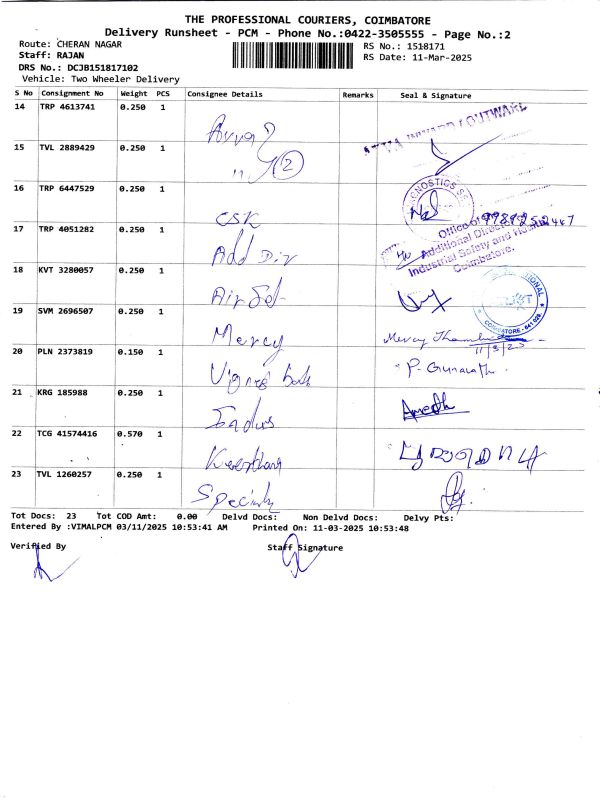 THE PROFESSIONAL COURIERS, COIMBATORE
Delivery Runsheet - PCM - Phone No.:0422-3505555 - Page No.:2
Route: CHERAN NAGAR
RS No.: 1518171
Staff: RAJAN
RS Date: 11-Mar-2025
DRS No.: DCJB151817102
Vehicle: Two Wheeler Delivery
S No Consignment No Weight PCS Consignee Details Remarks Seal & Signature
14 TRP 4613741 0.250 1
15 TVL 2889429 0.250 1 2
16 TRP 6447529 0.250 1 CSK
17 TRP 4051282 0.250 1 Add Dir
Additional Director
Industrial Safety and Health
Coimbatore.
18 KVT 3280057 0.250 1
19 SVM 2696507 0.250 1 Mercy
COIMBATORE - 641 029
11/3/25
20 PLN 2373819 0.150 1
21 KRG 185988 0.250 1
22 TCG 41574416 0.570 1
23 TVL 1260257 0.250 1
Tot Docs: 23 Tot COD Amt: 0.00 Delvd Docs: Non Delvd Docs: Delvy Pts:
Entered By :VIMALPCM 03/11/2025 10:53:41 AM Printed On: 11-03-2025 10:53:48
Verified By Staff Signature